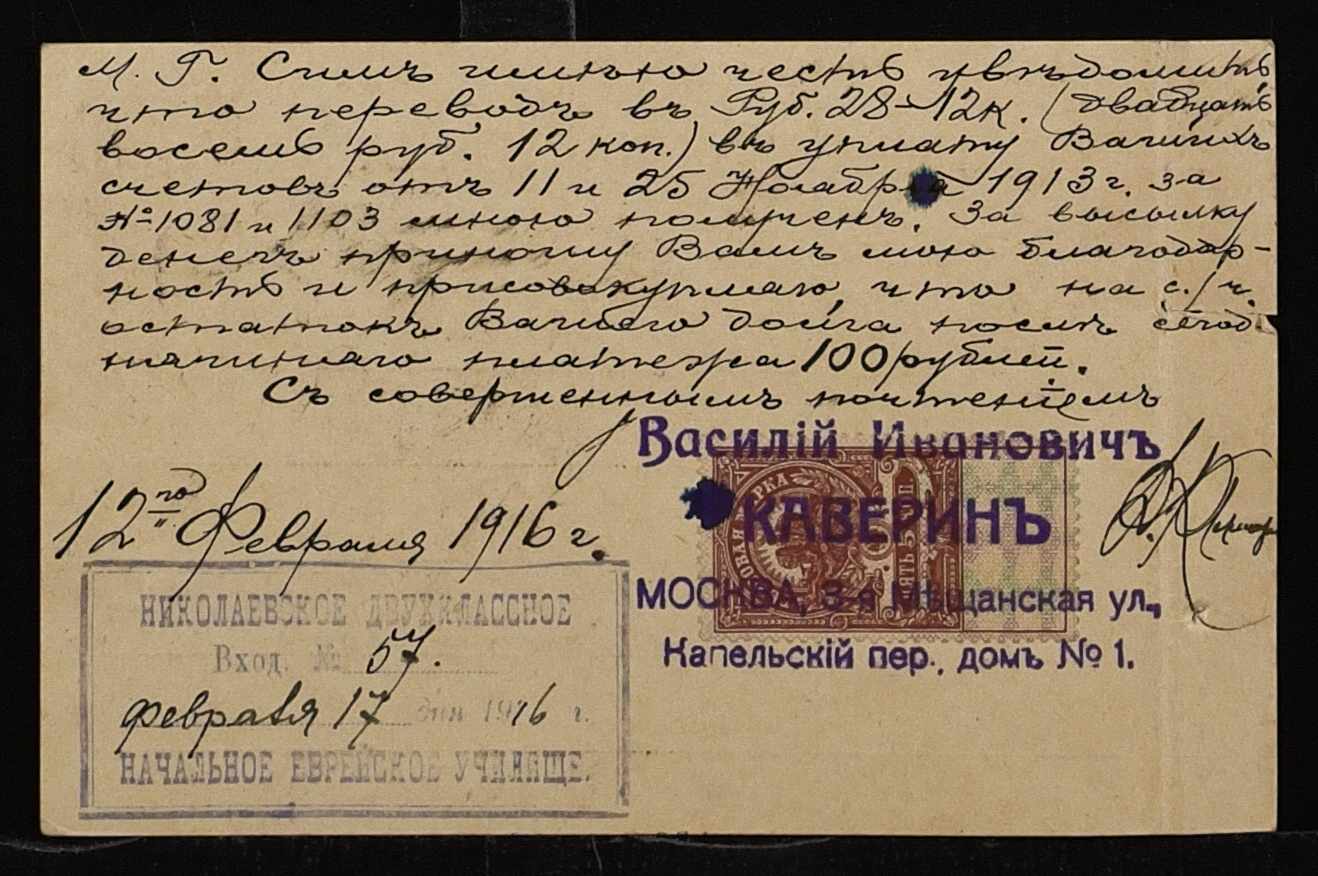 М. Г. Симъ имѣю честь увѣдомить
что переводъ въ Руб. 28-12к. (двадцать
восемь руб. 12 коп.) въ уплату Вашихъ
счетовъ отъ 11 и 25 Ноября 1913 г. за
№ 1081 и 1103 мною полученъ. За высылку
денегъ приношу Вамъ мою благодар-
ность и присовокупляю, что на с./ч.
остатокъ Вашего долга послѣ сегод
няшняго платежа 100 рублей.
Съ совершеннымъ почтеніемъ
Василій Ивановичъ
КАВЕРИНЪ
МОСКВА, 3-я Мѣщанская ул.,
Капельскій пер., домъ № 1.
12го Февраля 1916 г.
НИКОЛАЕВСКОЕ ДВУХКЛАССНОЕ
Вход. № 57.
февраля 17 дня 1916 г.
НАЧАЛЬНОЕ ЕВРЕЙСКОЕ УЧИЛИЩЕ.